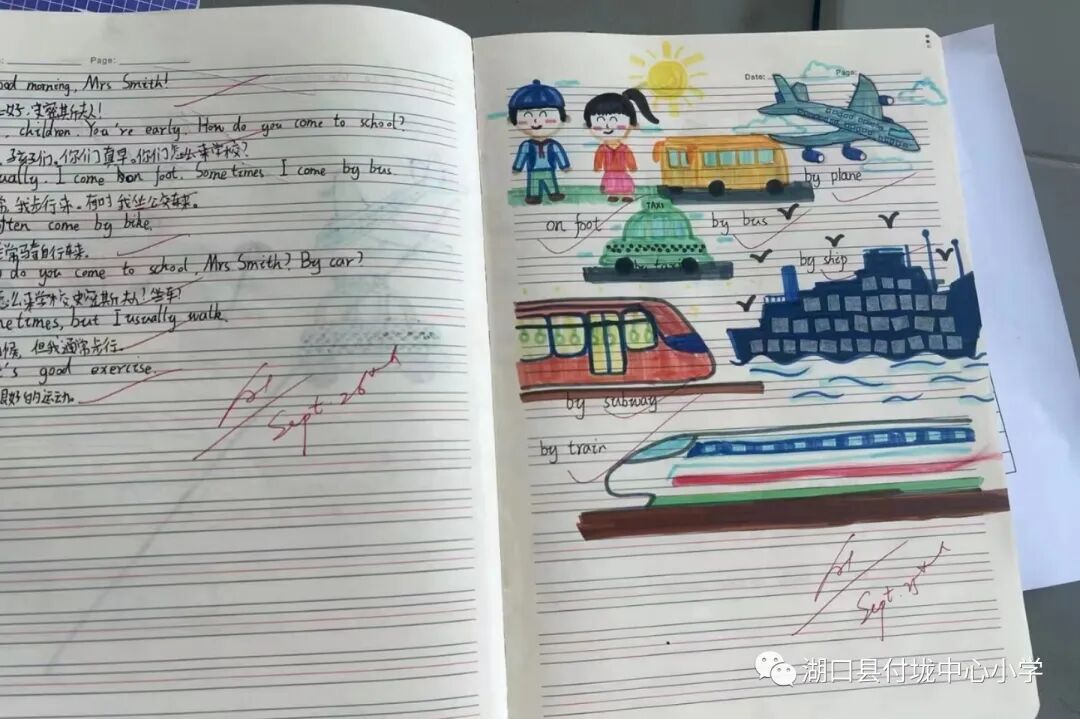 Page:
ood morning, Mrs Smith!
好,史密斯夫人!
children. You're early. How do you come to school?
孩子们。你们真早。你们怎么来学校?
ually. I come on foot. Sometimes I come by bus.
常,我步行来。有时我坐公交车来。
often come by bike.
常骑自行车来。
do you come to school, Mrs Smith? By car?
怎么来学校,史密斯夫人?坐车?
metimes, but I usually walk.
候,但我通常步行。
's good exercise.
很好的运动。
Sept. 26th
Date:
Page:
by plane
on foot
TAXI
by bus
by taxi
by ship
by subway
by train
Sept. 25th
湖口县付垅中心小学